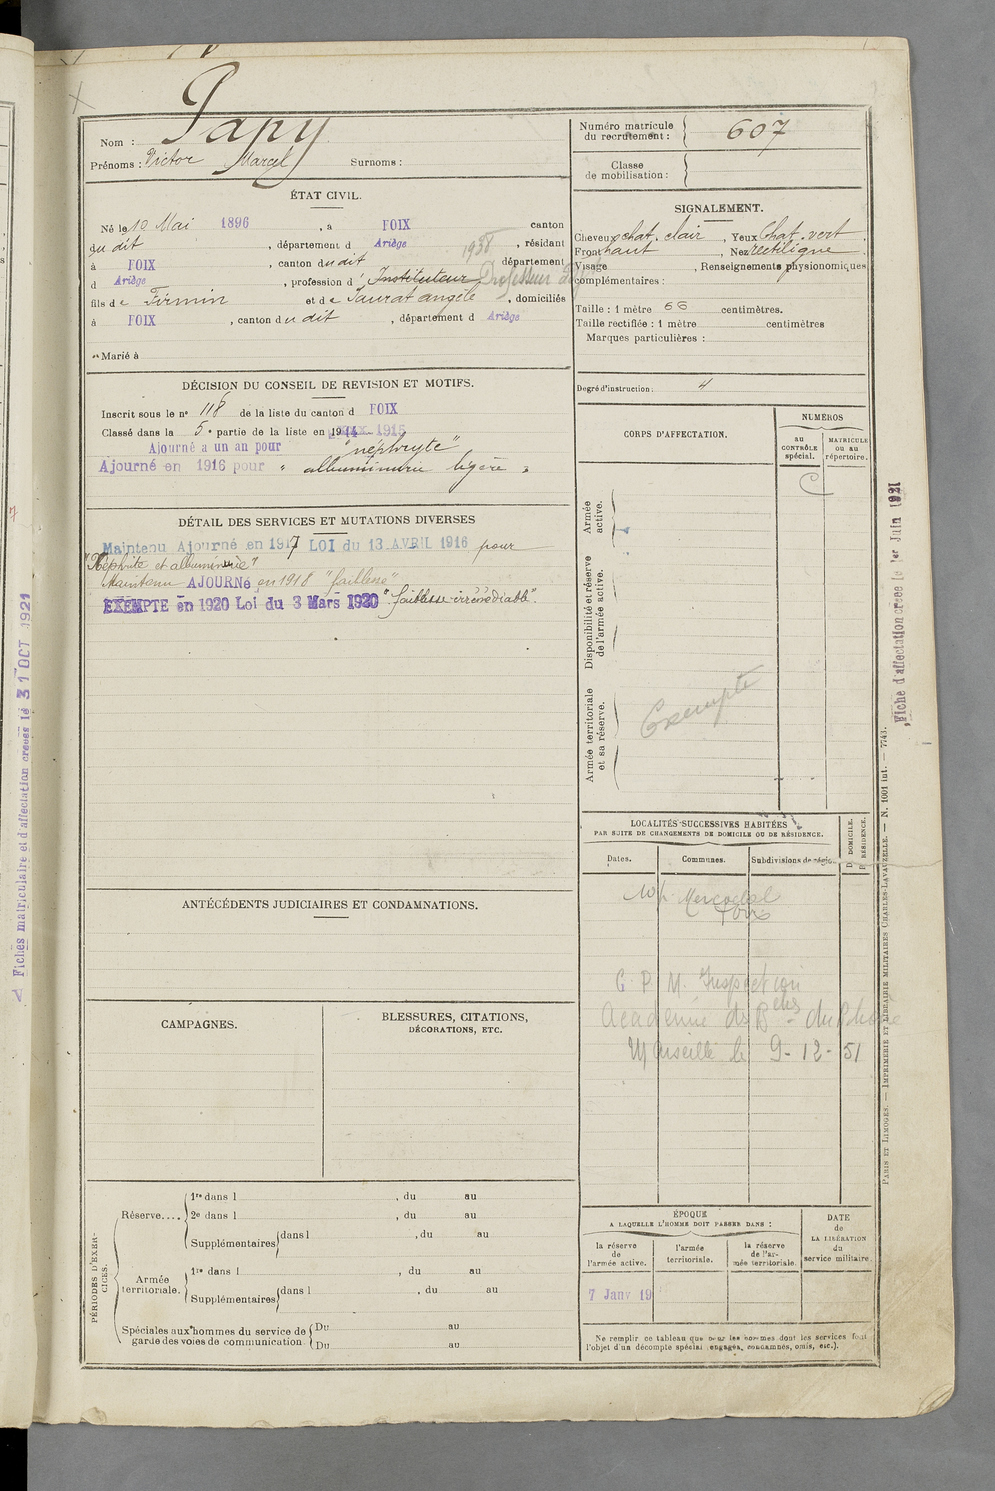 Papy
Nom :
Prénoms : Victor Marcel Surnoms :
Numéro matricule du recrutement : 607
Classe de mobilisation :
ÉTAT CIVIL.
Né le 10 Mai 1896, à FOIX canton
du dit, département d Ariège, résidant
à FOIX, canton du dit département
d Ariège, profession d' Instituteur Professeur
1938
fils de Firmin et de Saurat angèle, domiciliés
à FOIX, canton du dit, département d Ariège
Marié à
SIGNALEMENT.
Cheveux chat. clair, Yeux Chat. vert,
Front haut, Nez rectiligne
Visage, Renseignements physionomiques
complémentaires :
Taille : 1 mètre 66 centimètres.
Taille rectifiée : 1 mètre centimètres
Marques particulières :
Degré d'instruction : 4
DÉCISION DU CONSEIL DE REVISION ET MOTIFS.
Inscrit sous le n° 118 de la liste du canton d FOIX
Classé dans la 5e partie de la liste en 1915
Ajourné à un an pour "néphryte"
Ajourné en 1916 pour "albuminurie légère"
DÉTAIL DES SERVICES ET MUTATIONS DIVERSES
Maintenu Ajourné en 1917 LOI du 13 AVRIL 1916 pour
"Néphrite et albuminurie"
Maintenu AJOURNÉ en 1918 "faiblesse"
EXEMPTÉ en 1920 Loi du 3 Mars 1920 "faiblesse irrémédiable".
CORPS D'AFFECTATION.
NUMÉROS
au CONTRÔLE spécial.
MATRICULE ou au répertoire.
C
Armée active.
Disponibilité et réserve de l'armée active.
Armée territoriale et sa réserve.
Exempté
ANTÉCÉDENTS JUDICIAIRES ET CONDAMNATIONS.
LOCALITÉS SUCCESSIVES HABITÉES
PAR SUITE DE CHANGEMENTS DE DOMICILE OU DE RÉSIDENCE.
Dates. Communes. Subdivisions de région.
D. DOMICILE.
R. RÉSIDENCE.
Foix
G P M. Inspection
Académie des Bches du Rhône
Marseille le 9-12-51
CAMPAGNES.
BLESSURES, CITATIONS,
DÉCORATIONS, ETC.
PÉRIODES D'EXERCICES.
Réserve....
1re dans l , du au
2e dans l , du au
Supplémentaires dans l , du au
Armée territoriale.
1re dans l , du au
Supplémentaires dans l , du au
Spéciales aux hommes du service de garde des voies de communication
Du au
Du au
ÉPOQUE
A LAQUELLE L'HOMME DOIT PASSER DANS :
la réserve de l'armée active.
l'armée territoriale.
la réserve de l'armée territoriale.
DATE de LA LIBÉRATION du service militaire.
7 Janv 19
Ne remplir ce tableau que pour les hommes dont les services font
l'objet d'un décompte spécial (engagés, condamnés, omis, etc.).
PARIS ET LIMOGES. — IMPRIMERIE ET LIBRAIRIE MILITAIRES CHARLES-LAVAUZELLE. — N. 1001 int. — 7743.
Fiche d'affectation créée le 1er Juin 1921
2 Fiches matriculaire et d'affectation créées le 31 OCT 1921